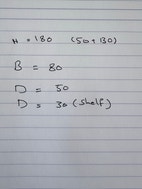 H = 180 (50+130)
B = 80
D = 50
D = 30 (Shelf)